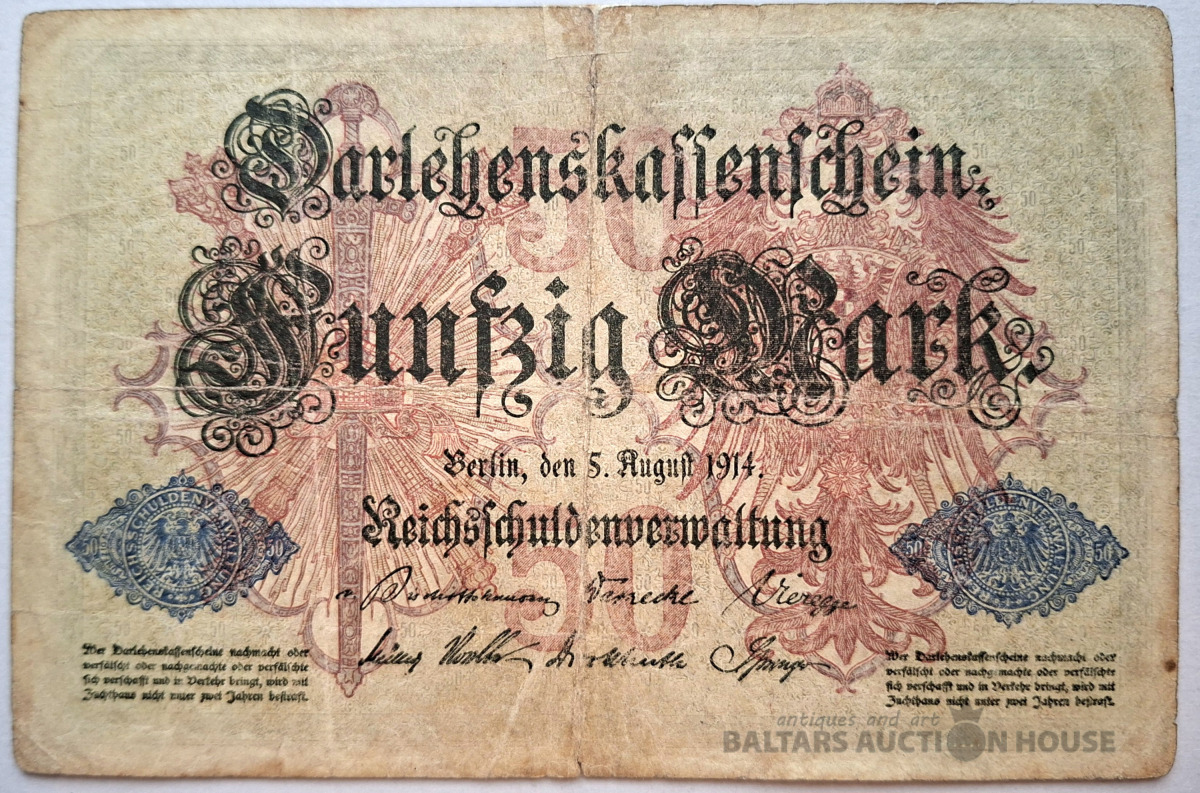 Darlehenskassenschein.
50
Fünfzig Mark.
Berlin, den 5. August 1914.
Reichsschuldenverwaltung
50
50 REICHSSCHULDENVERWALTUNG 50
50 REICHSSCHULDENVERWALTUNG 50
Wer Darlehenskassenscheine nachmacht oder
verfälscht oder nachgemachte oder verfälschte
sich verschafft und in Verkehr bringt, wird mit
Zuchthaus nicht unter zwei Jahren bestraft.
Wer Darlehenskassenscheine nachmacht oder
verfälscht oder nachgemachte oder verfälschte
sich verschafft und in Verkehr bringt, wird mit
Zuchthaus nicht unter zwei Jahren bestraft.
antiques and art
BALTARS AUCTION HOUSE